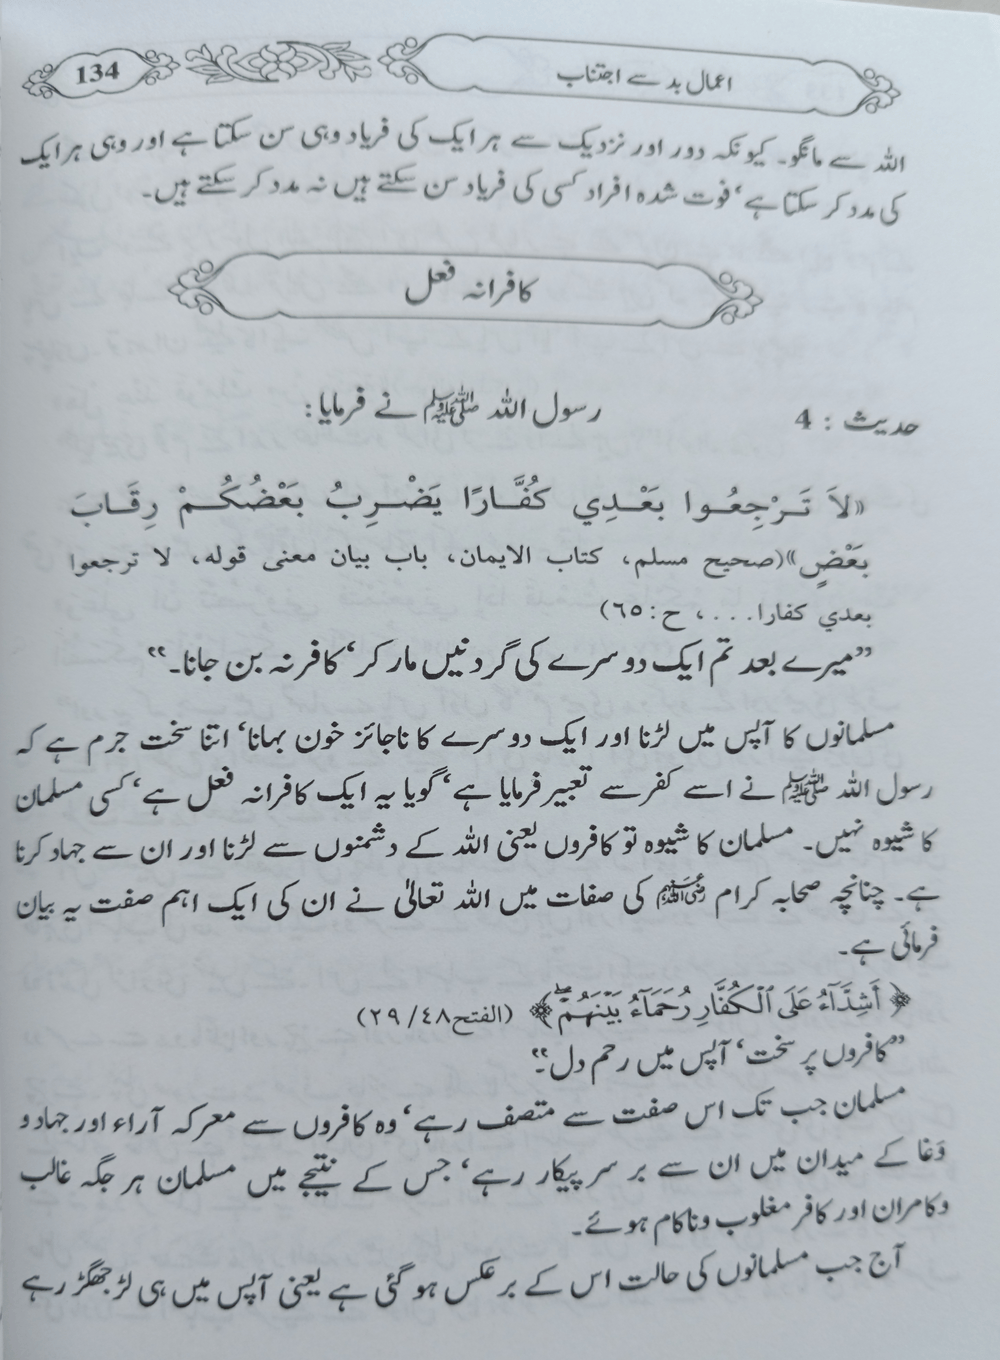 134
اعمال بد سے اجتناب
اللہ سے مانگو۔ کیونکہ دور اور نزدیک سے ہر ایک کی فریاد وہی سن سکتا ہے اور وہی ہر ایک
کی مدد کر سکتا ہے‘ فوت شدہ افراد کسی کی فریاد سن سکتے ہیں نہ مدد کر سکتے ہیں۔
کافرانہ فعل
حدیث : 4 رسول اللہ ﷺ نے فرمایا:
«لاَ تَرْجِعُوا بَعْدِي كُفَّارًا يَضْرِبُ بَعْضُكُمْ رِقَابَ
بَعْضٍ»(صحيح مسلم، كتاب الايمان، باب بيان معنى قوله، لا ترجعوا
بعدي كفارا...، ح:٦٥)
”میرے بعد تم ایک دوسرے کی گردنیں مار کر‘ کافر نہ بن جانا۔“
مسلمانوں کا آپس میں لڑنا اور ایک دوسرے کا ناجائز خون بہانا‘ اتنا سخت جرم ہے کہ
رسول اللہ ﷺ نے اسے کفر سے تعبیر فرمایا ہے‘ گویا یہ ایک کافرانہ فعل ہے‘ کسی مسلمان
کا شیوہ نہیں۔ مسلمان کا شیوہ تو کافروں یعنی اللہ کے دشمنوں سے لڑنا اور ان سے جہاد کرنا
ہے۔ چنانچہ صحابہ کرام رضی اللہ عنہم کی صفات میں اللہ تعالیٰ نے ان کی ایک اہم صفت یہ بیان
فرمائی ہے۔
﴿أَشِدَّآءُ عَلَى ٱلْكُفَّارِ رُحَمَآءُ بَيْنَهُمْۖ﴾ (الفتح٤٨/٢٩)
”کافروں پر سخت‘ آپس میں رحم دل۔“
مسلمان جب تک اس صفت سے متصف رہے‘ وہ کافروں سے معرکہ آراء اور جہاد و
وَغا کے میدان میں ان سے بر سر پیکار رہے‘ جس کے نتیجے میں مسلمان ہر جگہ غالب
وکامران اور کافر مغلوب وناکام ہوئے۔
آج جب مسلمانوں کی حالت اس کے برعکس ہو گئی ہے یعنی آپس میں ہی لڑ جھگڑ رہے